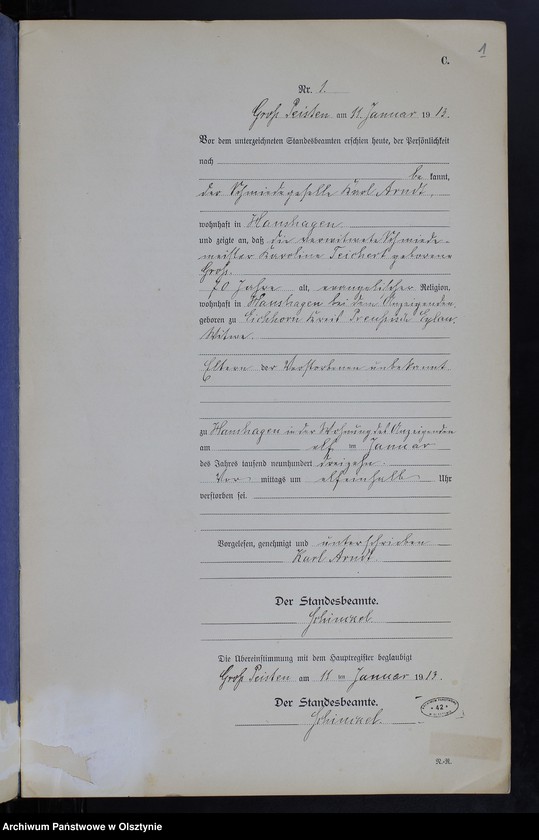 1
C.
Nr. 1.
Groß Peisten am 11. Januar 1913.
Vor dem unterzeichneten Standesbeamten erschien heute, der Persönlichkeit
nach
be kannt,
der Schmiedegeselle Karl Arndt,
wohnhaft in Hanshagen
und zeigte an, daß die verwitwete Schmiede-
meister Karoline Teichert geborene
Groß.
70 Jahre alt, evangelischer Religion,
wohnhaft in Hanshagen bei dem Anzeigenden,
geboren zu Eichhorn Kreis Preußisch Eylau,
Witwe.
Eltern der Verstorbenen unbekannt
zu Hanshagen in der Wohnung des Anzeigenden
am elf ten Januar
des Jahres tausend neunhundert dreizehn
Vor mittags um elfeinhalb Uhr
verstorben sei.
Vorgelesen, genehmigt und unterschrieben
Karl Arndt.
Der Standesbeamte.
Schinckel
Die Übereinstimmung mit dem Hauptregister beglaubigt
Groß Peisten am 11 ten Januar 1913.
Der Standesbeamte.
Schinckel.
* 42 *
N.-R.
Archiwum Państwowe w Olsztynie